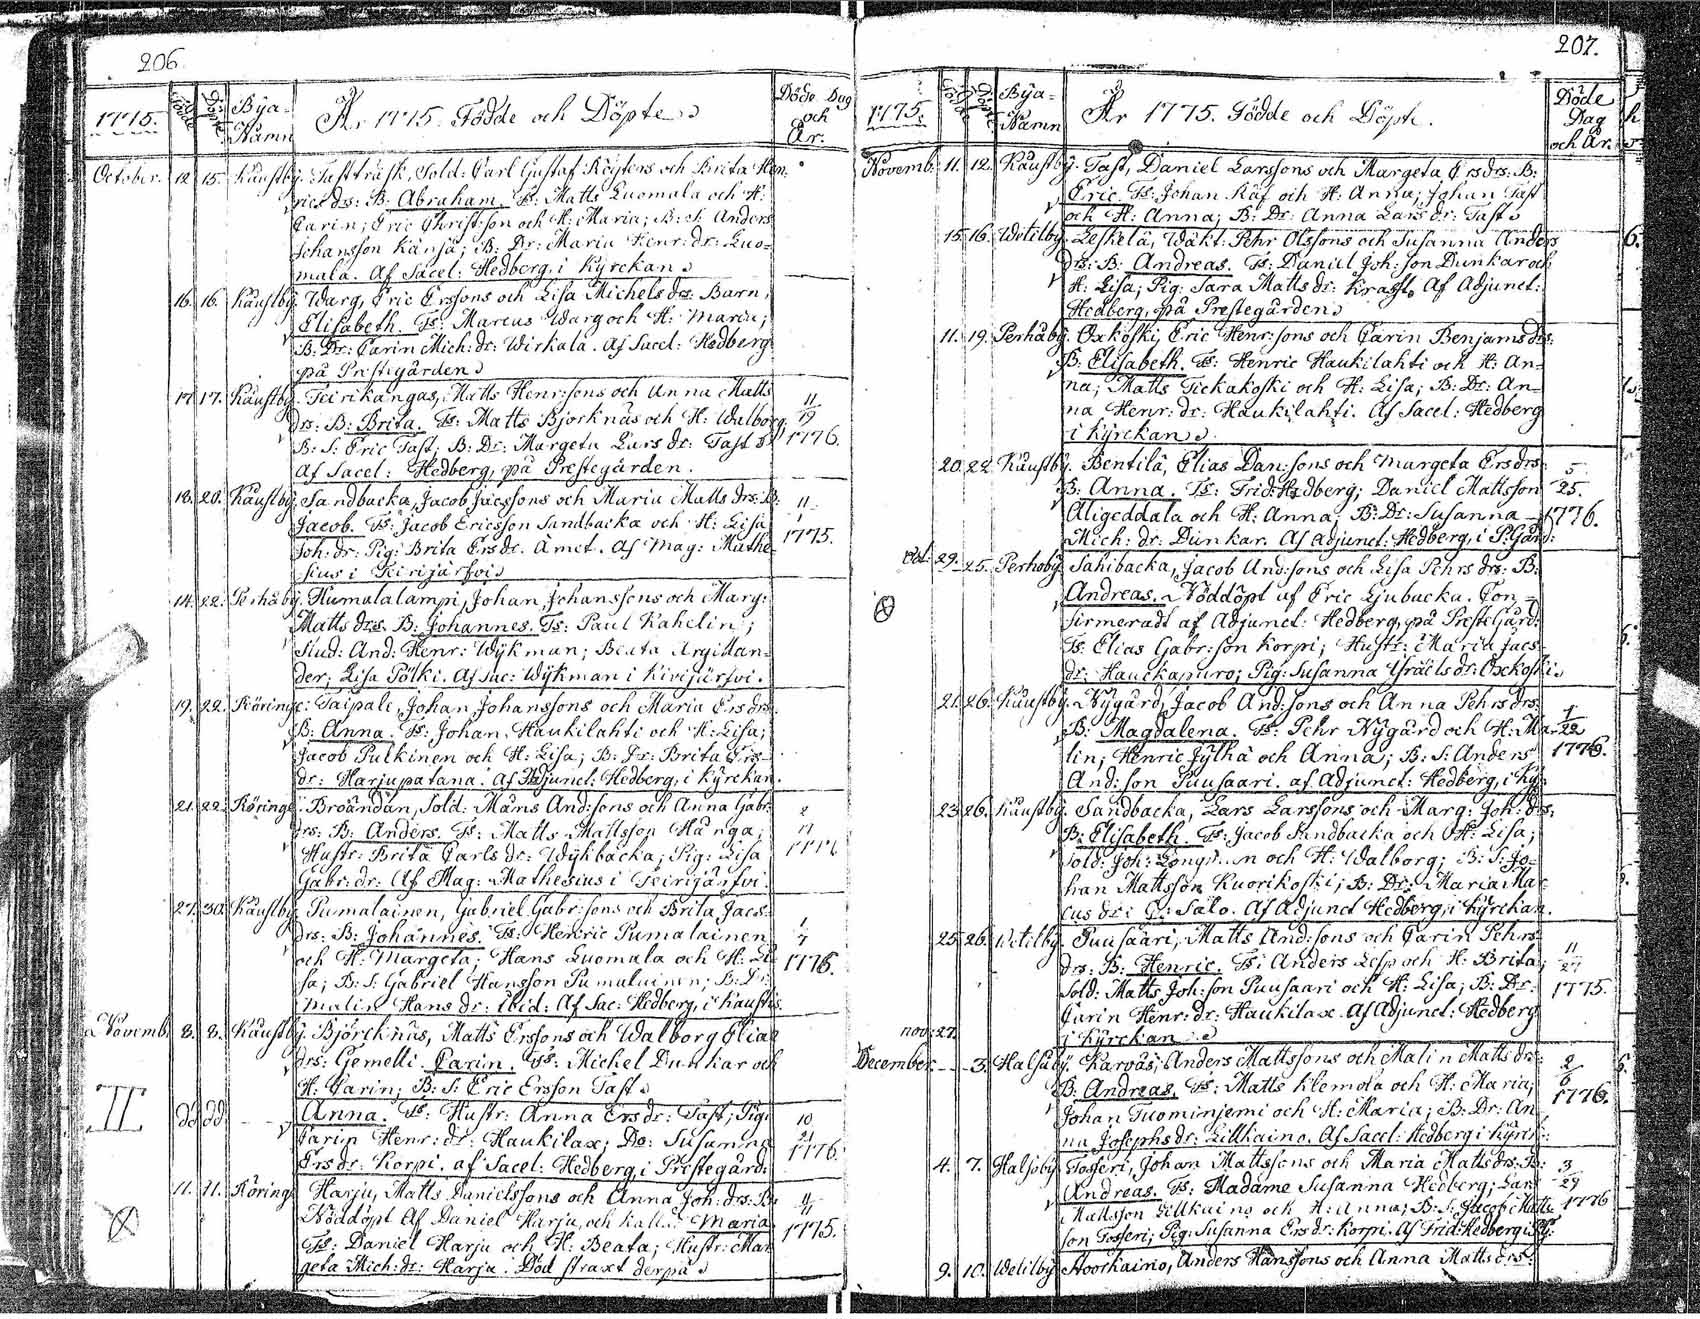 206.
1775. Födde Döpte Bÿa-Namn År 1775. Födde och Döpte Döde Dag och År.
October. 12 15. Kaustbÿ. Tastträsk, Sold: Carl Gustaf Röÿters och Brita Hen-
rics drs: B: Abraham. Fs: Matts Luomala och H:
Carin; Eric Christ:son och H: Maria; B: S: Anders
Johansson Känsä; B: Dr: Maria Henr: dr: Luo-
mala. Af Sacel: Hedberg, i Kÿrckan
16. 16. Kaustbÿ. Warg, Eric Erssons och Lisa Michels drs: Barn,
Elisabeth. Fs: Marcus Warg och H: Maria;
B: Dr: Carin Mich: dr: Wirkala. Af Sacel: Hedberg
på Prestegården
17 17. Kaustbÿ. Teirikangas, Matts Henr:sons och Anna Matts 11
drs: B: Brita. Fs: Matts Björcknäs och H: Walborg, 19
B: S: Eric Tast; B: Dr: Margeta Lars dr: Tast 1776.
Af Sacel: Hedberg, på Prestegården.
18. 20. Kaustbÿ. Sandbacka, Jacob Jacssons och Maria Matts drs: B: 11
Jacob. Fs: Jacob Ericsson Sandbacka och H: Lisa
Joh: dr: Pig: Brita Ers dr. Åmet. Af Mag: Mathe- 1775.
sius i Teirijärfvi
14. 22. Perhåbÿ. Humalalampi, Johan Johanssons och Marg:
Matts drs. B: Johannes. Fs: Paul Kahelin;
Stud: And: Henr: Wÿkman; Beata Argillan-
der; Lisa Pölki. Af Sac: Wÿkman i Kivijärfvi.
19. 22. Köringe: Taipale, Johan Johanssons och Maria Ers drs.
B: Anna. Fs: Johan Haukilahti och H: Lisa;
Jacob Pulkinen och H: Lisa; B: Dr: Brita Ers-
dr: Harjupatana. Af Adjunct: Hedberg, i Kÿrckan.
21. 22. Köringe: Broändan, Sold: Måns And:sons och Anna Gabr: 2
drs: B: Anders. Fs: Matts Mattsson Hånga;
Hustr: Brita Carls dr: Wÿkbacka; Pig: Lisa
Gabr: dr: Af Mag: Mathesius i Teirijärfvi.
27. 30. Kaustbÿ. Pumalainen, Gabriel Gabr:sons och Brita Jacs- 1
drs: B: Johannes. Fs: Henric Pumalainen 7
och H: Margeta; Hans Luomala och H: Li- 1776.
sa; B: S: Gabriel Hansson Pumalainen; B: Dr:
Malin Hans dr: ibid: Af Sac: Hedberg, i Kaustb
Novemb. 8. 8. Kaustbÿ. Björcknäs, Matts Erssons och Walborg Elia
drs: Gemelli Carin. Fs: Michel Dunkar och
H: Carin; B: S: Eric Ersson Tast
II dd dd Anna. Fs: Hustr: Anna Ers dr: Tast, Pig: 10
Carin Henr: dr: Haukilax; Do: Susanna 21
Ers dr: Korpi. af Sacel: Hedberg, i Prestegård: 1776.
11. 11. Köringe Harju, Matts Danielssons och Anna Joh: drs: B: 11
Nöddöpt Af Daniel Harju, och kallad Maria 11
Fs: Daniel Harju och H: Beata; Hustr: Mar 1775.
geta Mich: dr: Harju. Död straxt derpå
207.
1775. Födde Döpte Bÿa-Namn År 1775. Födde och Döpte. Döde Dag och År.
Novemb. 11. 12. Kaustbÿ. Tast, Daniel Larssons och Margeta Ers drs: B:
Eric. Fs: Johan Räf och H: Anna; Johan Tast
och H: Anna; B: Dr: Anna Lars dr: Tast
15 16. Wetilbÿ. Leskelä, Wäkt: Pehr Olssons och Susanna Anders
drs: B: Andreas. Fs: Daniel Joh:son Dunkar och
H: Lisa; Pig: Sara Matts dr: Kraft. Af Adjunct:
Hedberg, på Prestegården
11. 19. Perhåbÿ. Oxkoski, Eric Henr:sons och Carin Benjams drs:
B: Elisabeth. Fs: Henric Haukilahti och H: An-
na; Matts Tickakoski och H: Lisa; B: Dr: An-
na Henr: dr: Haukilahti. Af Sacel: Hedberg
i kÿrckan
20. 22. Kaustbÿ. Bentilä, Elias Dan:sons och Margeta Ers drs: 5
B: Anna. Fs: Frid: Hedberg; Daniel Mattsson 25.
Aligeddala och H: Anna; B: Dr: Susanna 1776.
Mich: dr: Dunkar. Af Adjunct: Hedberg, i P:Gård:
oct: 29. 25. Perhobÿ. Sahibacka, Jacob And:sons och Lisa Pehrs drs: B:
Andreas. Nöddöpt af Eric Ljubacka. Con-
firmeradt af Adjunct: Hedberg, på PresteGård:
Fs: Elias Gabr:son Korpi; Hustr: Maria Jacs-
dr: Hauckapuro; Pig: Susanna Ysraels dr: Oxkoski
21. 26. Kaustbÿ. Nÿgård, Jacob And:sons och Anna Pehrs drs: 1
B: Magdalena. Fs: Pehr Nÿgård och H: Ma- 22
lin; Henric Jÿlhä och Anna; B: S: Anders 1776.
And:son Puusaari. af Adjunct: Hedberg, i Kÿ:
23 26. Kaustbÿ. Sandbacka, Lars Larssons och Marg: Joh: drs:
B: Elisabeth. Fs: Jacob Sandbacka och H: Lisa;
Sold: Joh: och H: Walborg; B: S: Jo-
han Mattsson Kuorikoski; B: Dr: Maria Mar-
cus dr: Salo. Af Adjunct Hedberg, i Kÿrckan.
25 26. Wetilbÿ. Puusaari, Matts And:sons och Carin Pehrs- 11
drs: B: Henric. Fs: Anders Lesp och H: Brita; 27
Sold: Matts Joh:son Puusaari och H: Lisa; B: Dr: 1775.
Carin Henr: dr: Haukilax. Af Adjunct: Hedberg
nov: 27. i Kÿrckan
December. 3. Halsobÿ. Karvås, Anders Mattssons och Malin Matts drs: 2
B: Andreas. Fs: Matts Klemola och H: Maria; 6
Johan Tuominjemi och H: Maria; B: Dr: An 1776.
na Josephs dr: Lillkaino. Af Sacel: Hedberg i Kÿrck:
4. 7. Halsobÿ. Tofferi, Johan Mattssons och Maria Matts drs: B: 3
Andreas. Fs: Madame Susanna Hedberg; Lars 29
Mattsson Lillkaino och H: Anna; B: S: Jacob Matts- 1776
son Tofferi; Pig: Susanna Ers dr: Korpi. Af Frid: Hedberg i
9. 10. Wetilbÿ Stoorkaino, Anders Hanssons och Anna Matts drs: